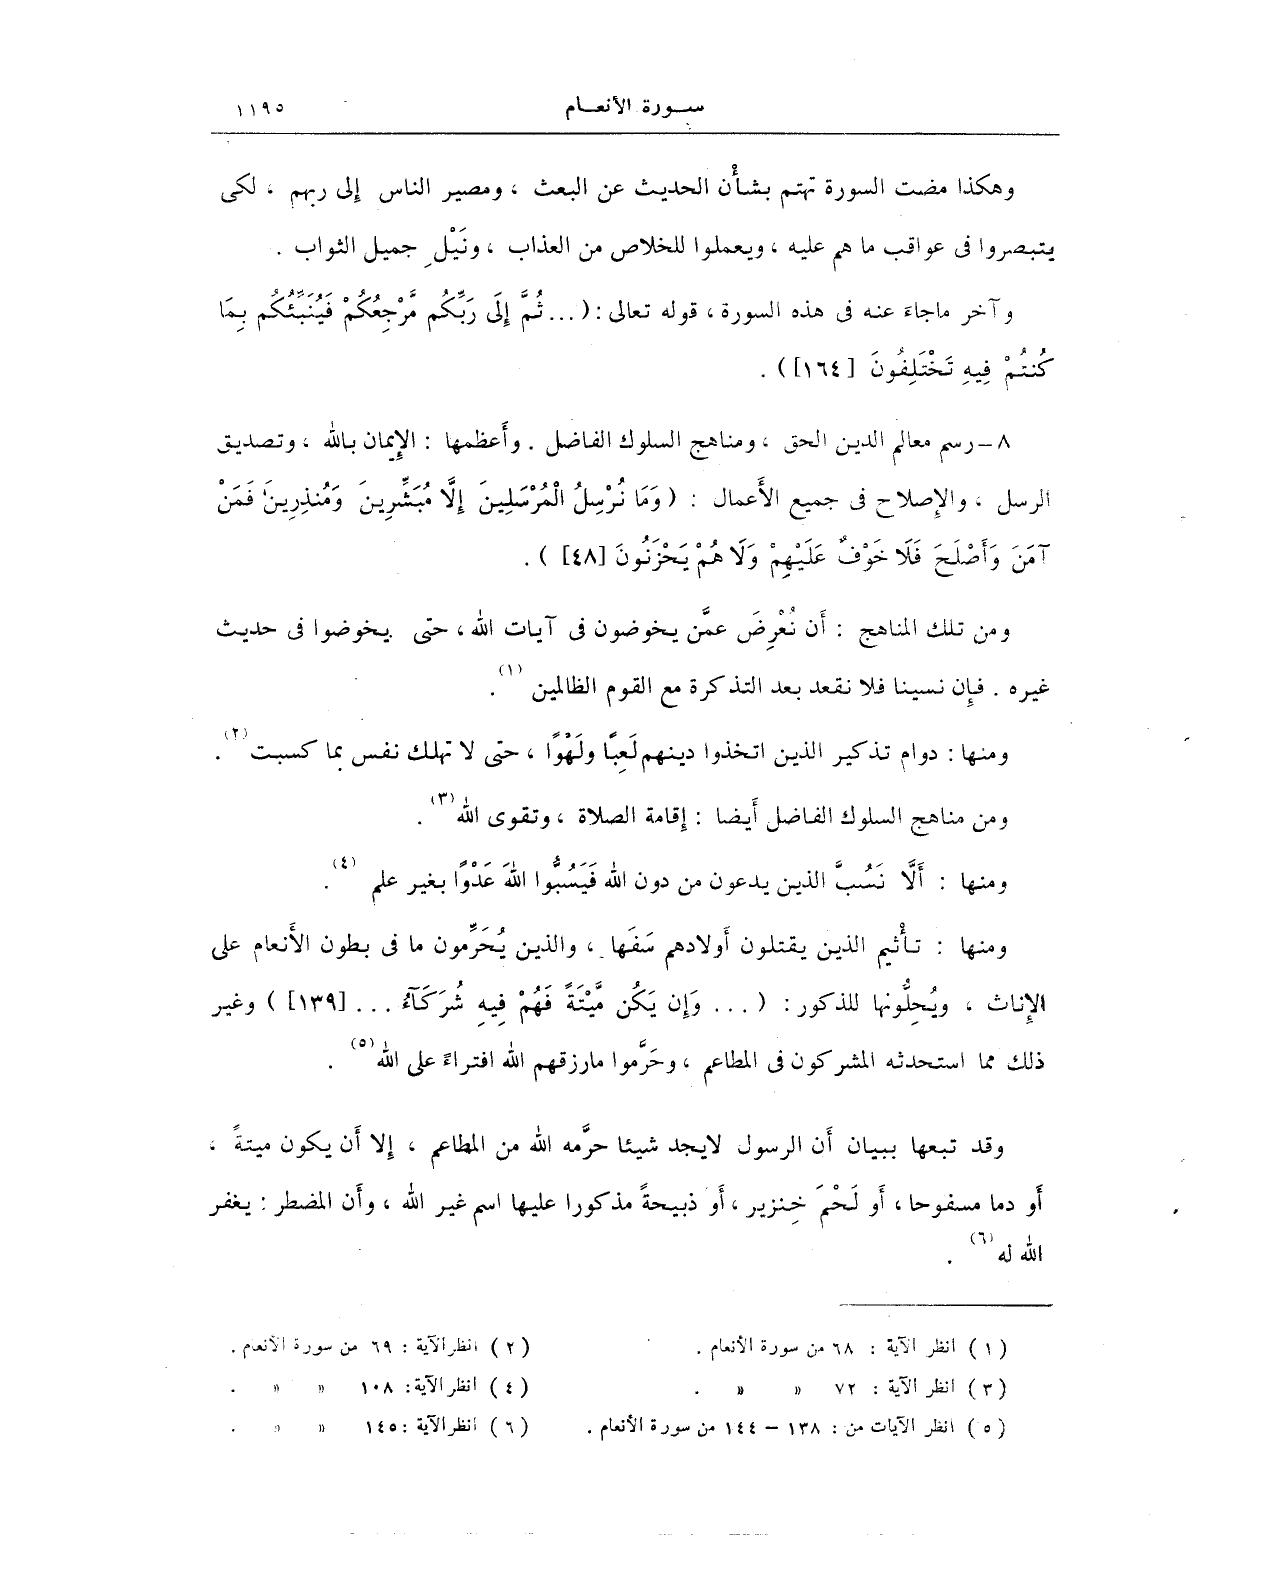 سورة الأنعام ١١٩٥
وهكذا مضت السورة تهتم بشأْن الحديث عن البعث ، ومصير الناس إلى ربهم ، لكى
يتبصروا فى عواقب ما هم عليه ، ويعملوا للخلاص من العذاب ، ونَيْلِ جميل الثواب .
وآخر ماجاءَ عنه فى هذه السورة ، قوله تعالى : ( ... ثُمَّ إِلَى رَبِّكُم مَّرْجِعُكُمْ فَيُنَبِّئُكُم بِمَا
كُنتُمْ فِيهِ تَخْتَلِفُونَ [١٦٤] ) .
٨ – رسم معالم الدين الحق ، ومناهج السلوك الفاضل . وأَعظمها : الإِيمان بالله ، وتصديق
الرسل ، والإِصلاح فى جميع الأَعمال : ( وَمَا نُرْسِلُ الْمُرْسَلِينَ إِلَّا مُبَشِّرِينَ وَمُنذِرِينَ فَمَنْ
آمَنَ وَأَصْلَحَ فَلَا خَوْفٌ عَلَيْهِمْ وَلَا هُمْ يَحْزَنُونَ [٤٨] ) .
ومن تلك المناهج : أَن نُعْرِضَ عمَّن يخوضون فى آيات الله ، حتى يخوضوا فى حديث
غيره . فإِن نسينا فلا نقعد بعد التذكرة مع القوم الظالمين (١) .
ومنها : دوام تذكير الذين اتخذوا دينهم لَعِبًا ولَهْوًا ، حتى لا تهلك نفس بما كسبت (٢) .
ومن مناهج السلوك الفاضل أَيضا : إقامة الصلاة ، وتقوى الله (٣) .
ومنها : أَلَّا نَسُبَّ الذين يدعون من دون الله فَيَسُبُّوا اللهَ عَدْوًا بغير علم (٤) .
ومنها : تأْثيم الذين يقتلون أَولادهم سَفَها ، والذين يُحَرِّمون ما فى بطون الأَنعام على
الإِناث ، ويُحِلُّونها للذكور : ( ... وَإِن يَكُن مَّيْتَةً فَهُمْ فِيهِ شُرَكَآءُ ... [١٣٩] ) وغير
ذلك مما استحدثه المشركون فى المطاعم ، وحَرَّموا مارزقهم الله افتراءً على الله (٥) .
وقد تبعها ببيان أَن الرسول لايجد شيئا حرَّمه الله من المطاعم ، إلا أَن يكون ميتةً ،
أَو دما مسفوحا ، أَو لَحْمَ خِنزير ، أَو ذبيحةً مذكورا عليها اسم غير الله ، وأَن المضطر : يغفر
الله له (٦) .
(١) انظر الآية : ٦٨ من سورة الأنعام . (٢) انظر الآية : ٦٩ من سورة الأنعام .
(٣) انظر الآية : ٧٢ » » . (٤) انظر الآية : ١٠٨ » » .
(٥) انظر الآيات من : ١٣٨ – ١٤٤ من سورة الأنعام . (٦) انظر الآية : ١٤٥ » » .